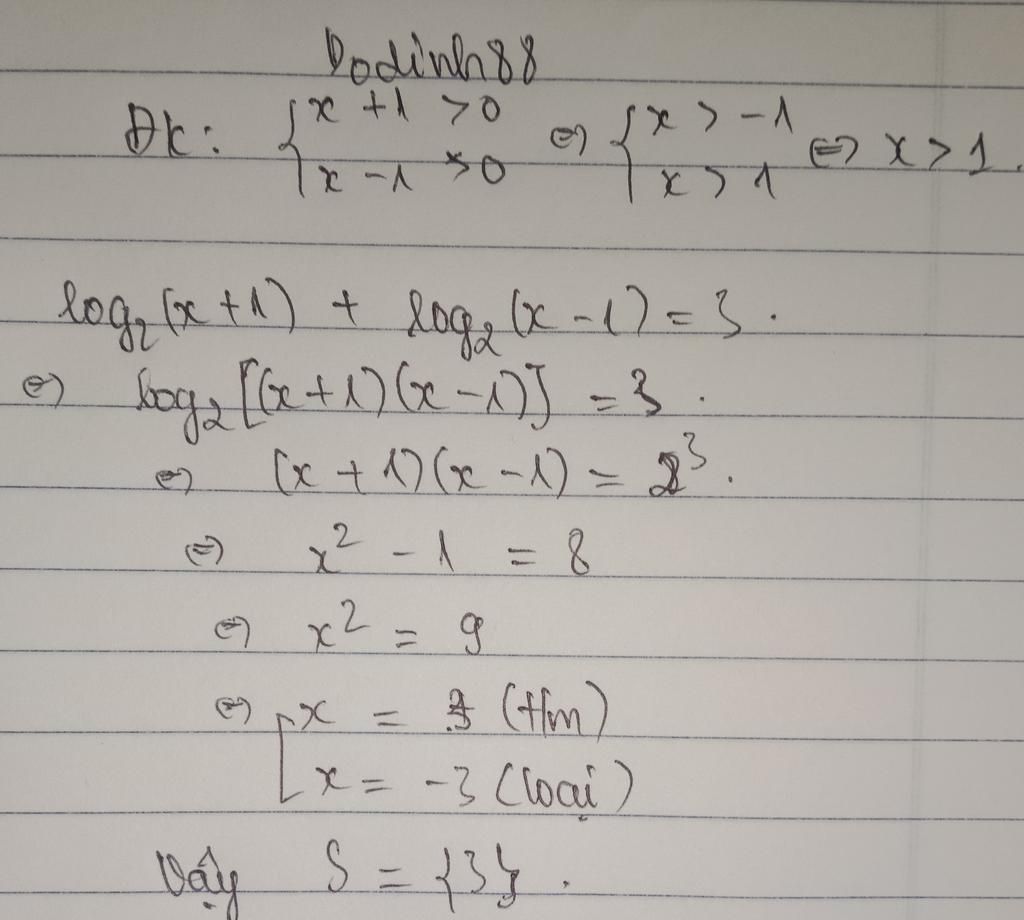 Dodinh88
Đk: { x + 1 > 0 ⇔ { x > -1 ⇔ x > 1.
x - 1 > 0 x > 1
log₂(x + 1) + log₂(x - 1) = 3.
⇔ log₂[(x + 1)(x - 1)] = 3.
⇔ (x + 1)(x - 1) = 2³.
⇔ x² - 1 = 8
⇔ x² = 9
⇔ [ x = 3 (t/m)
x = -3 (loại)
Vậy S = {3}.